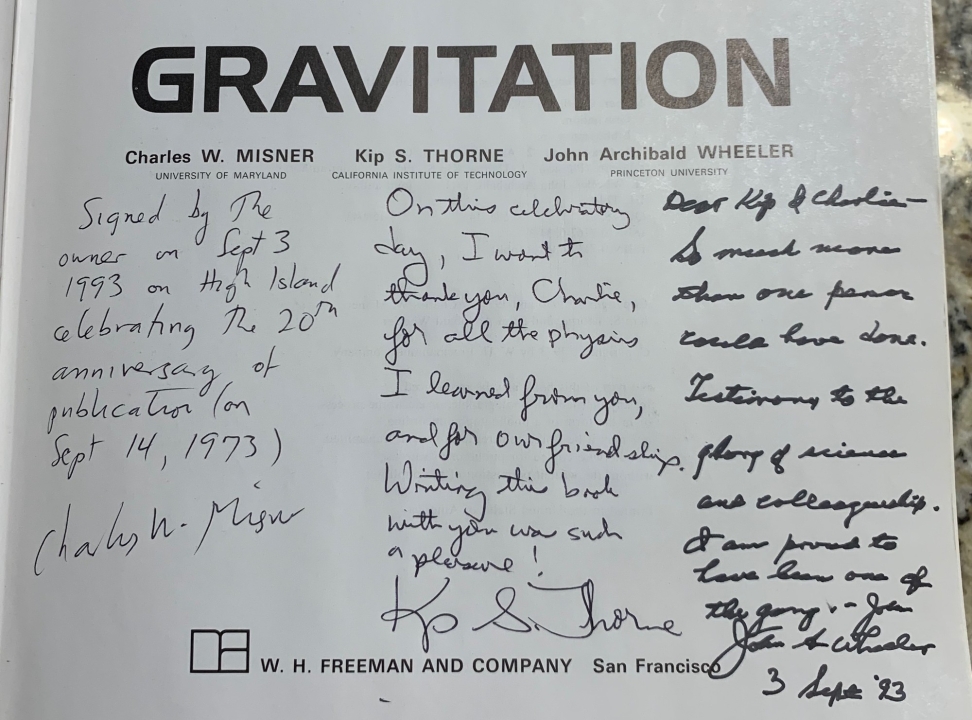 GRAVITATION
Charles W. MISNER
UNIVERSITY OF MARYLAND
Kip S. THORNE
CALIFORNIA INSTITUTE OF TECHNOLOGY
John Archibald WHEELER
PRINCETON UNIVERSITY
Signed by The
owner on Sept 3
1993 on High Island
celebrating The 20th
anniversary of
publication (on
Sept 14, 1973)
Charles W. Misner
On this celebratory
day, I want to
thank you, Charlie,
for all the physics
I learned from you,
and for our friendship.
Writing this book
with you was such
a pleasure!
Kip S. Thorne
Dear Kip & Charlie—
So much more
than one person
could have done.
Testimony to the
glory of science
and colleagueship.
I am proud to
have been one of
the gang -- John
John A Wheeler
3 Sept '93
W. H. FREEMAN AND COMPANY San Francisco